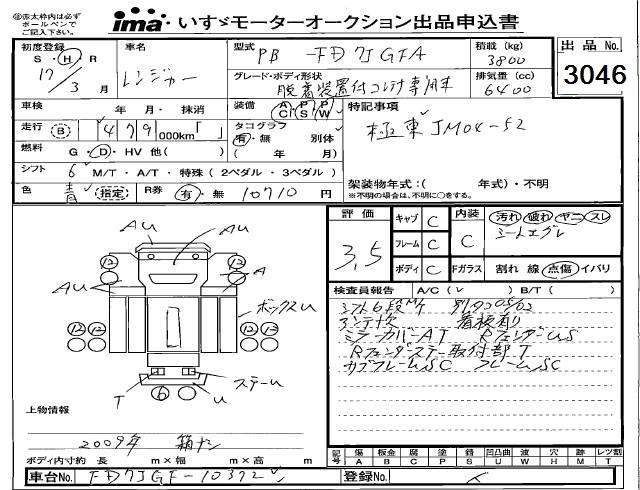 ⑯赤太枠内は必ず
ボールペンで
ご記入下さい。
ima いすゞモーターオークション出品申込書
初度登録 車名 型式 PB-FD7JGFA 積載(kg) 3800 出品No.
S・H・R 17 3月 レンジャー グレード・ボディ形状 脱着装置付コンテナ専用車 排気量(cc) 6400 3046
車検 年 月・ 抹消 装備 A/C P/S P/W 特記事項
走行 (B) 479 000km「 」 タコグラフ 有・無 別体 極東 JM04-52
燃料 G・D・HV 他( ) ( 年 月)
シフト 6 M/T・A/T・特殊(2ペダル・3ペダル) 架装物年式:( 年式)・不明
色 青 (指定) R券 有・無 10710円 ※不明の場合は、不明に○をする。
評価 3.5 キャブ C 内装 C 汚れ 破れ ヤニ スレ
フレーム C シートエグレ
ボディ C Fガラス 割れ 線 点傷 イバリ
AU AU
12 12
AU A
ボックスU
12 12 12 12
T 6 U ステーU
検査員報告 A/C( レ ) B/T( )
シフト6段M/T 別タコ05/02
アンテナ欠 看板有り
ミラーカバーAT RフェンダーUS
Rフェンダーステー取付部T
サブフレームSC フレームSC
上物情報
2009年 箱ナシ
ボディ内寸約 長 m×幅 m×高 m
記号 傷 A 板金 B 腐 C 塗 P 錆 S 凹凸曲 U 波 W 穴 H 跡 M レツ割 T
車台No. FD7JGF-10372 登録No.